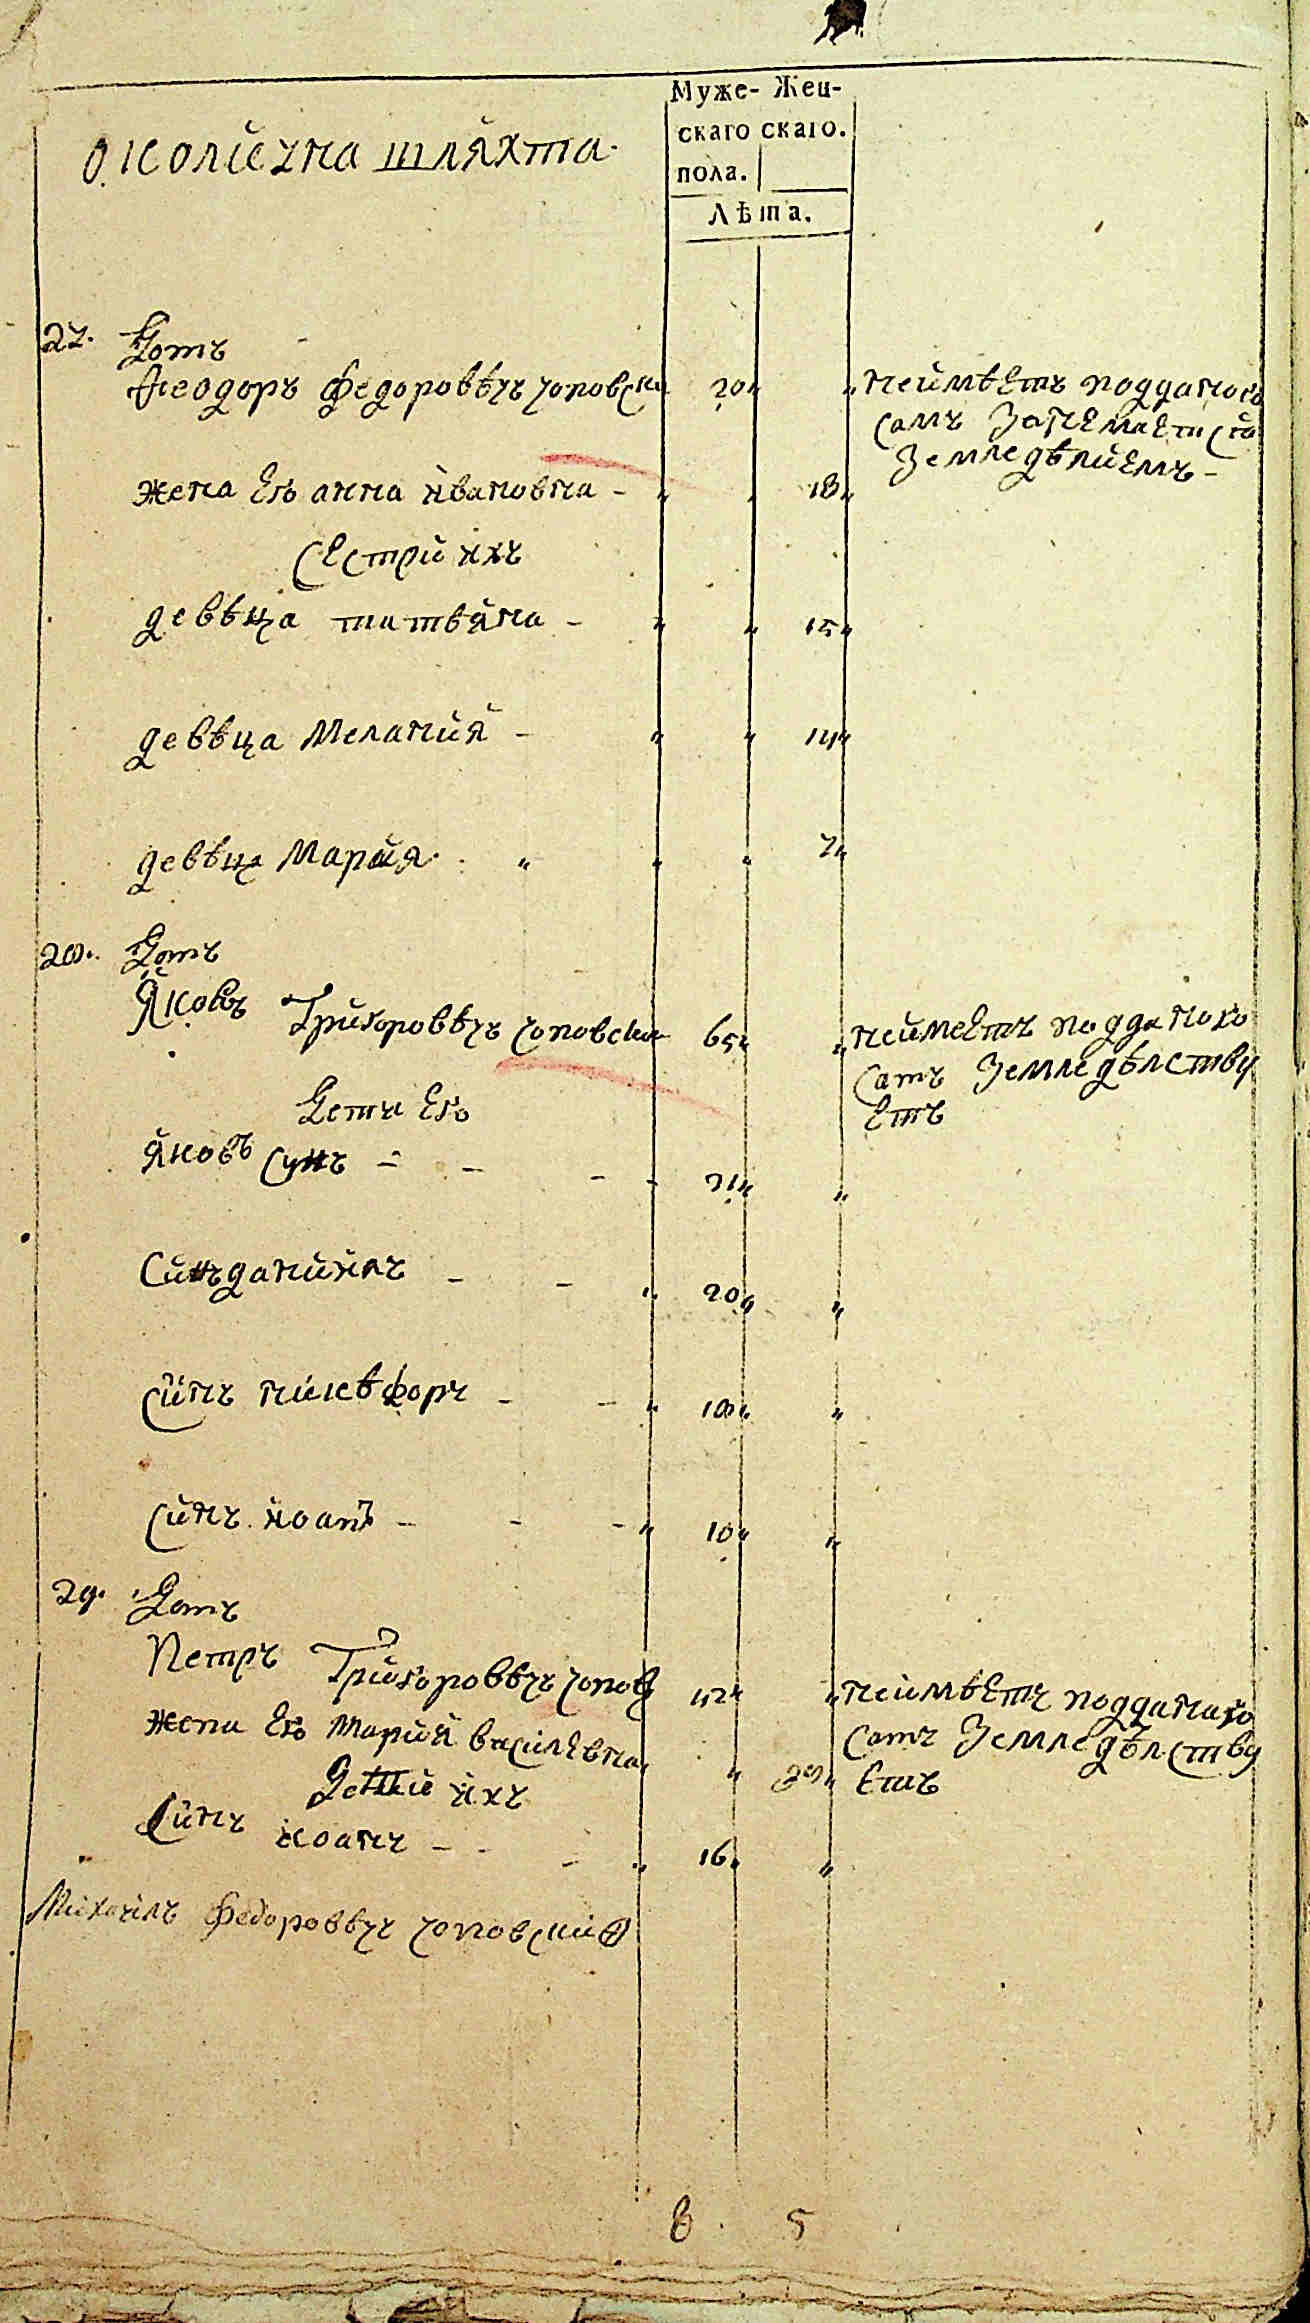 Муже- Жен-
скаго скаго.
пола.
Лѣта.
околична шляхта
27. Домъ
Ѳеодоръ Федоровѣчъ Чоповски 20 неимѣетъ подданого
самъ занемается
земледѣлиемъ
жена его анна ивановна 18
сестри ихъ
девѣца татвяна 15
девѣца Мелания 14
девѣца Мария 7
28. Домъ
Яковъ Григоровѣчъ Чоповски 65 неимеетъ подданого
самъ земледѣлству
етъ
Дети его
яковъ сунъ 21
Синъ даниилъ 20
синъ никѣфоръ 18
синъ иоанъ 10
29. Домъ
Петръ Григоровѣчъ Чоповs 42 неимѣетъ подданаго
самъ земледѣлству
етъ
жена его Мария василевна
Дети ихъ
Синъ иоанъ 16
Михаилъ Федоровѣчъ Чоповский
8 5